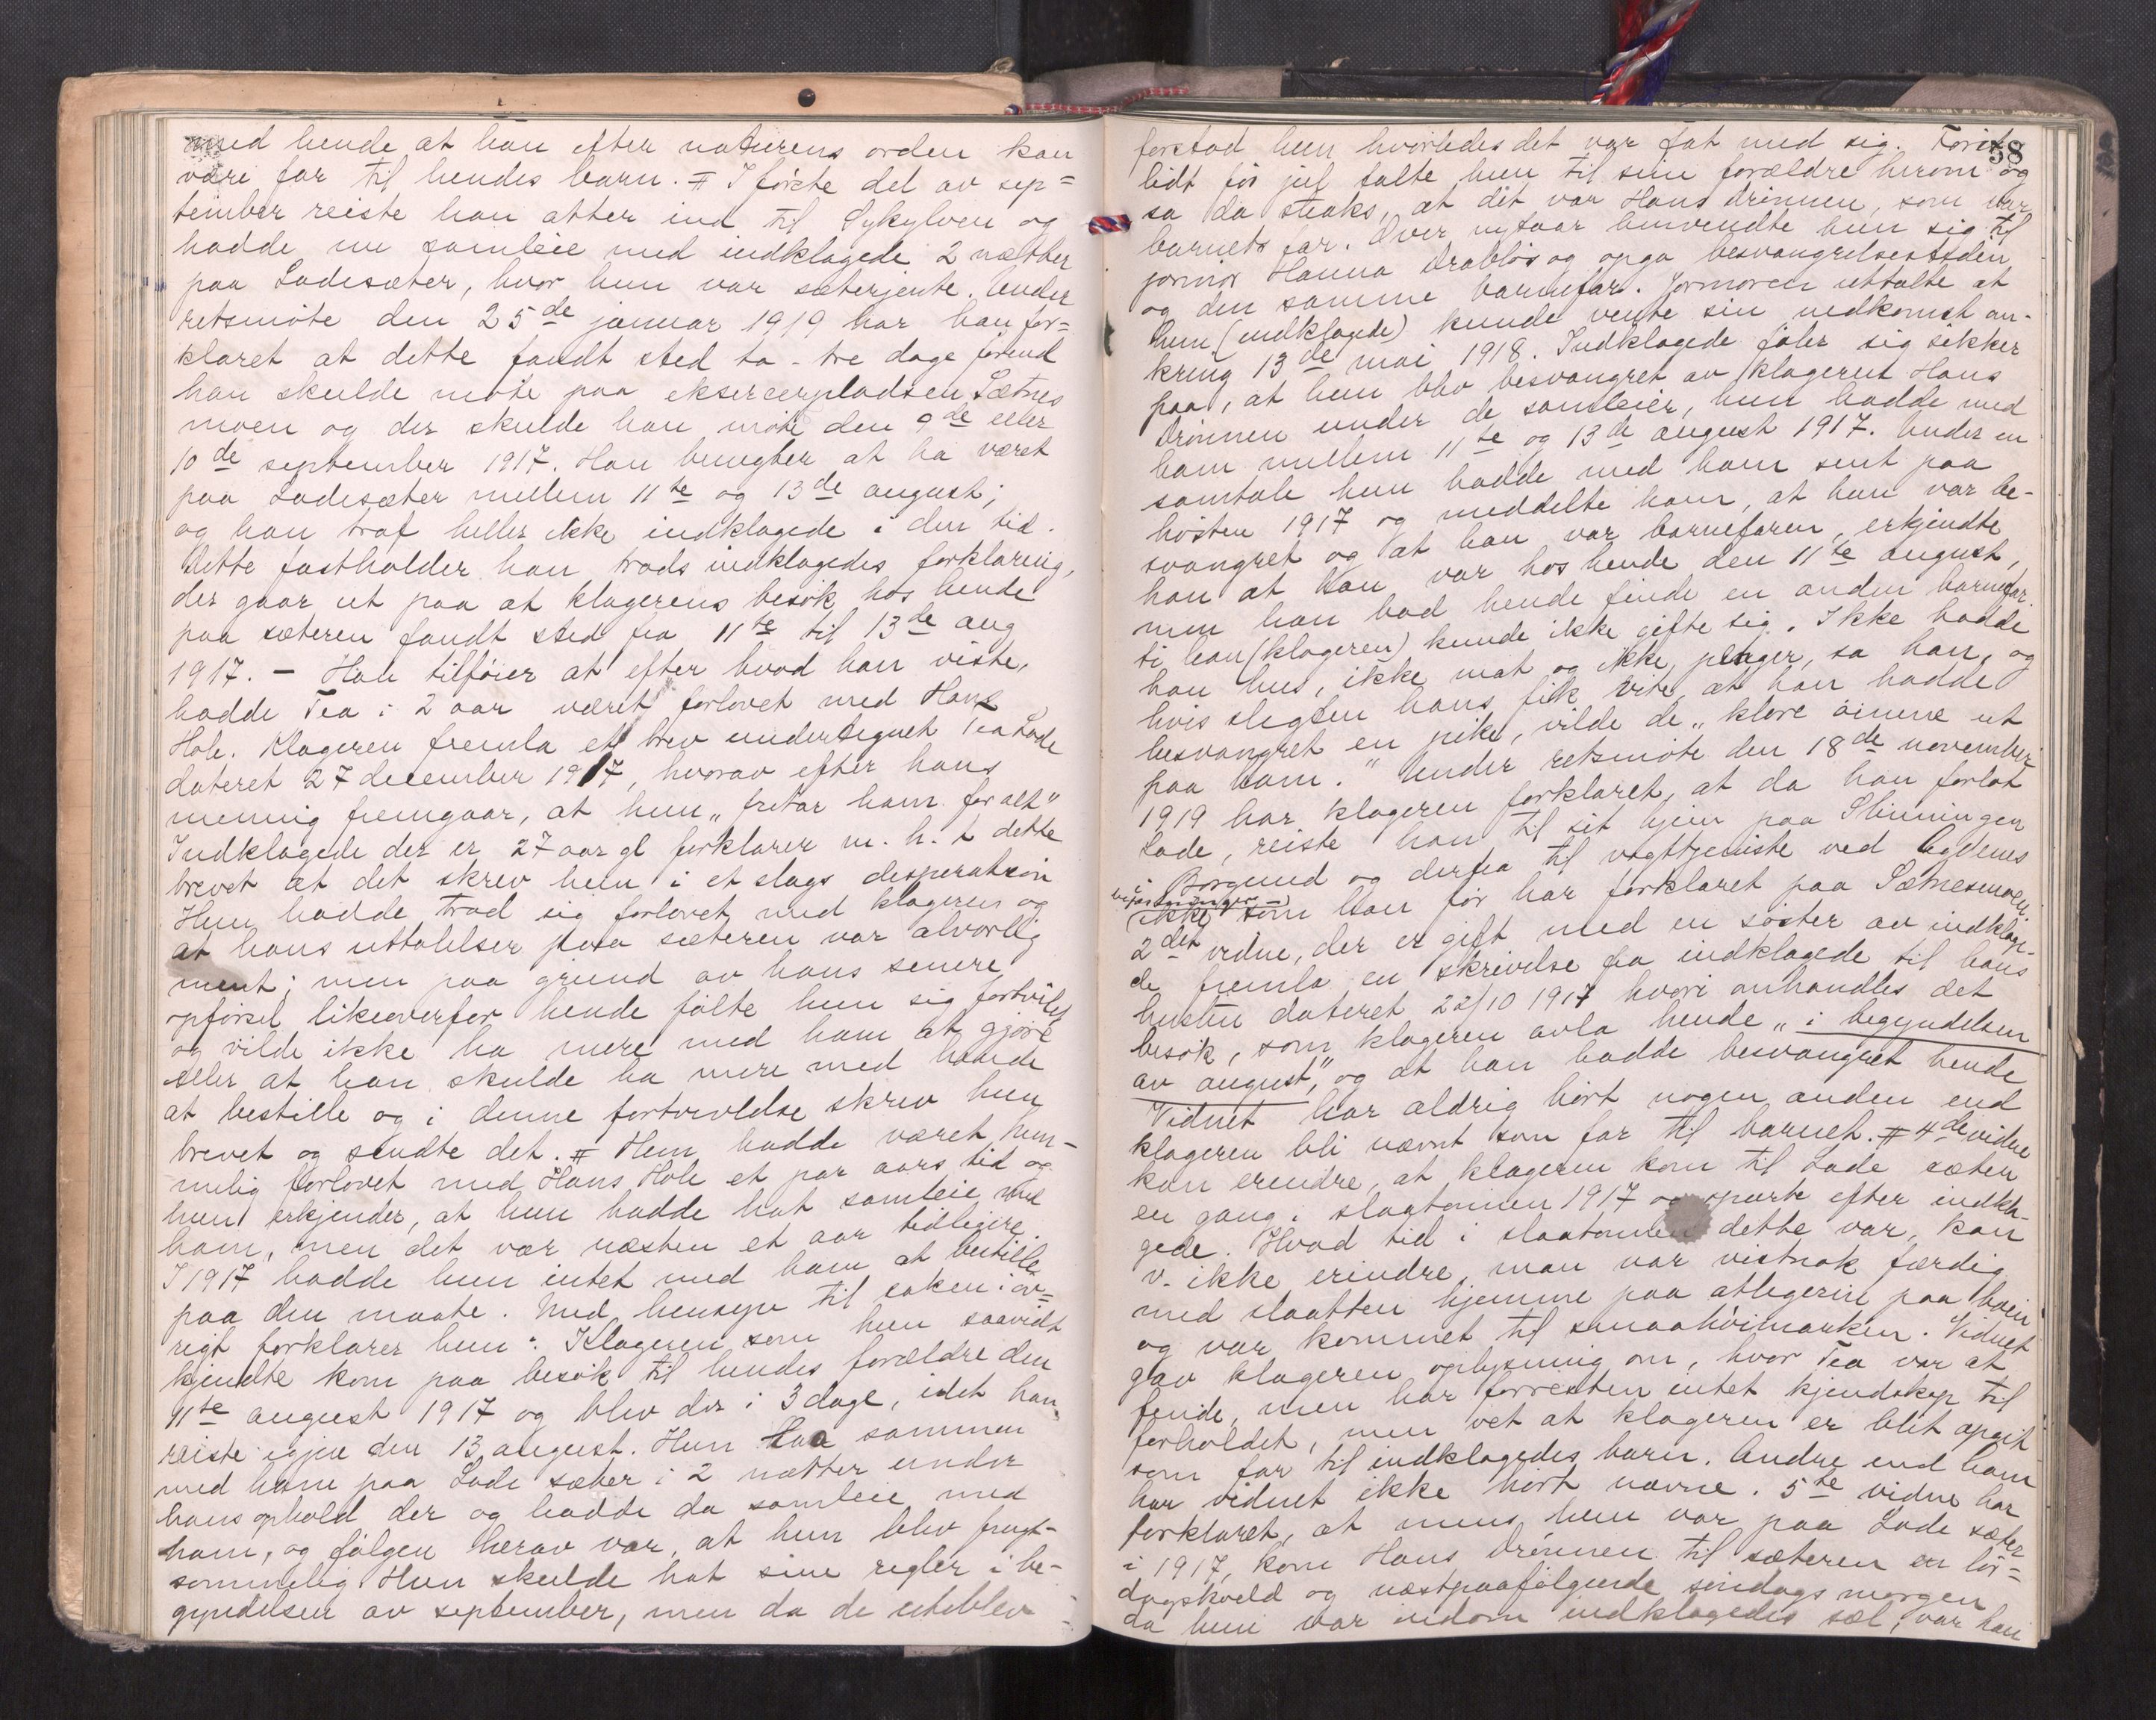 med hende at han efter naturens orden kan
være far til hendes barn. # I förste del av sep=
tember reiste han atter ind til Sykylven og
hadde nu samleie med indklagede 2 nætter
paa Ladesæter, hvor hun var sæterjente. Under
retsmöte den 25de januar 1919 har han for=
klaret at dette fandt sted to - tre dage förend
han skulde möte paa eksercerpladsen Sætnes
moen og der skulde han möte den 9de eller
10de september 1917. Han benegter at ha været
paa Ladesæter mellem 11te og 13de august;
og han traf heller ikke indklagede i den tid.
Dette fastholder han trods indklagedes forklaring,
der gaar ut paa at klagerens besök hos hende
paa sæteren fandt sted fra 11te til 13de aug
1917. - Han tilföier at efter hvad han viste,
hadde Tea i 2 aar været forlovet med Hans
Hole. Klageren fremla et brev undertegnet Tea Lade
dateret 27 december 1917, hvorav efter hans
mening fremgaar, at hun "fritar ham for alt"
Indklagede der er 27 aar gl forklarer m. h. t dette
brevet at det skrev hun i et slags desperation
Hun hadde trod sig forlovet med klageren og
at hans uttalelser paa sæteren var alvorlig
ment; men paa grund av hans senere
opförsel likeoverfor hende fölte hun sig fortvilet
og vilde ikke ha mere med ham at gjöre
eller at han skulde ha mere med hende
at bestille og i denne fortvivldse skrev hun
brevet og sendte det. # Hun hadde været hem-
melig forlovet med Hans Hole et par aars tid og
hun erkjender, at hun hadde hat samleie med
ham, men det var næsten et aar tidligere.
I 1917 hadde hun intet med ham at bestille
paa den maate. Med hensyn til saken i öv=
rigt forklarer hun: Klageren som hun saavidt
kjendte kom paa besök til hendes forældre den
11te august 1917 og blev der i 3 dage, idet han
reiste igjen den 13 august. Hun laa sammen
med ham paa Lade sæter i 2 nætter under
hans ophold der og hadde da samleie med
ham, og fölgen herav var, at hun blev frugt-
sommelig. Hun skulde hat sine regler i be-
gyndelsen av september, men da de uteblev
58
forstod hun hvorledes det var fat med sig. Först
lidt för jul talte hun til sine forældre herom og
sa da straks, at det var Hans Drönnen, som var
barnets far. Over nytaar henvendte hun sig til
jormor Hanna Drablös og opga besvangrelsestiden
og den samme barnefar. Jormoren uttalte at
hun (indklagede) kunde vente sin nedkomst om-
kring 13de mai 1918. Indklagede föler sig sikker
paa, at hun blev besvangret av klageren Hans
Drönnen under de samleier, hun hadde med
ham mellem 11te og 13de august 1917. Under en
samtale hun hadde med ham sent paa
hösten 1917 og meddelte ham, at hun var be-
svangret og at han var barnefaren, erkjendte
han at han var hos hende den 11te august,
men han bad hende finde en anden barnefar.
ti han (klageren) kunde ikke gifte sig. Ikke hadde
han hus, ikke mat og ikke penger, sa han, og
hvis slegten hans fik vite, at han hadde
besvangret en pike, vilde de "klore öinene ut
paa ham." Under retsmöte den 18de november
1919 har klageren forklaret, at da han forlot
Lade, reiste han til sit hjem paa Slinningen
i Borgund og derfra til vagttjeneste ved Agdenes
befæstninger -
ikke som han för har forklaret paa Sætnesmoen.
2det vidne, der er gift med en söster av indklage-
de fremla en skrivelse fra indklagede til hans
hustru dateret 22/10 1917 hvori omhandles det
besök, som klageren avla hende "i begyndelsen
av august", og at han hadde besvangret hende
Vidnet har aldrig hört nogen anden end
klageren bli nævnt som far til barnet. # 4de vidne
kan erindre, at klageren kom til Lade sæter
en gang i slaatonnen 1917 og spurte efter indkla-
gede. Hvad tid i slaatonnen dette var, kan
v. ikke erindre, man var vistnok færdig
med slaatten hjemme paa atlegerne paa böen
og var kommet til smaahöimarken. Vidnet
gav klageren oplysning om, hvor Tea var at
finde, men har forresten intet kjendskap til
forholdet, men vet at klageren er blit opgit
som far til indklagedes barn. Andre end ham
har vidnet ikke hört nævne. 5te vidne har
forklaret, at mens hun var paa Lade sæter
i 1917, kom Hans Drönnen til sæteren en lör=
dagskveld og næstpaafölgende söndags morgen
da hun var indom indklagedes sæl, var han